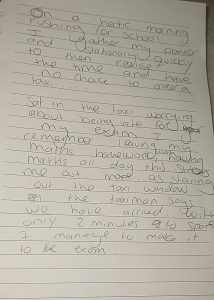 On a hectic morning
rushing for school
I gather my pones
and stationery quickly
to then realise
the time and have
no chose to order a
taxi.
Sat in the taxi worrying
about being late for
my exam. I
remember leaving my
maths homework, having
maths all day this stresses
me out more, as staring
out the taxi window
the taximan says
we have arrived with
only 2 minutes to spare
I manage to make it
to the exam.